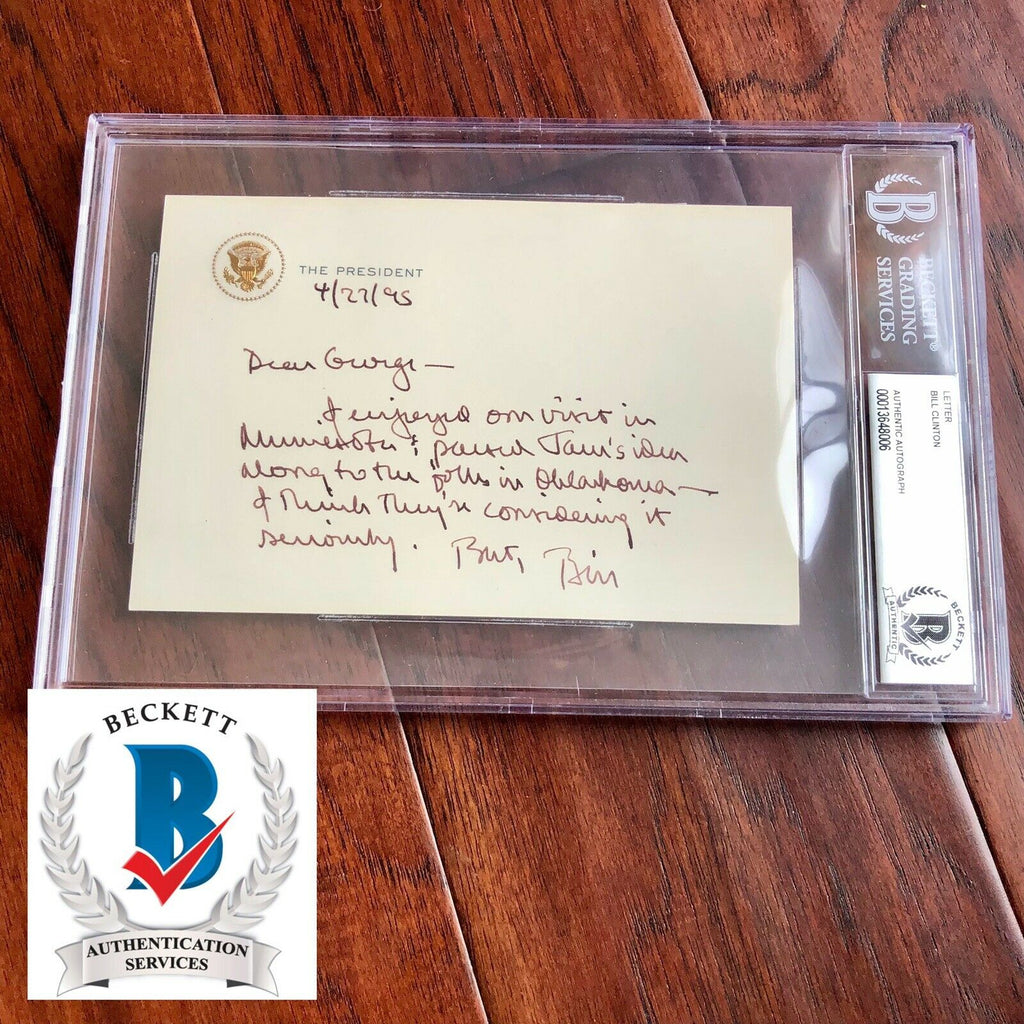 THE PRESIDENT
4/27/95
Dear George —
I enjoyed our visit in
Minnesota & passed Tami's idea
along to the folks in Oklahoma —
I think they're considering it
seriously. Best, Bill
B
BECKETT®
GRADING
SERVICES
LETTER
BILL CLINTON
AUTHENTIC AUTOGRAPH
00013648006
BECKETT
B
AUTHENTIC
BECKETT
B
AUTHENTICATION
SERVICES